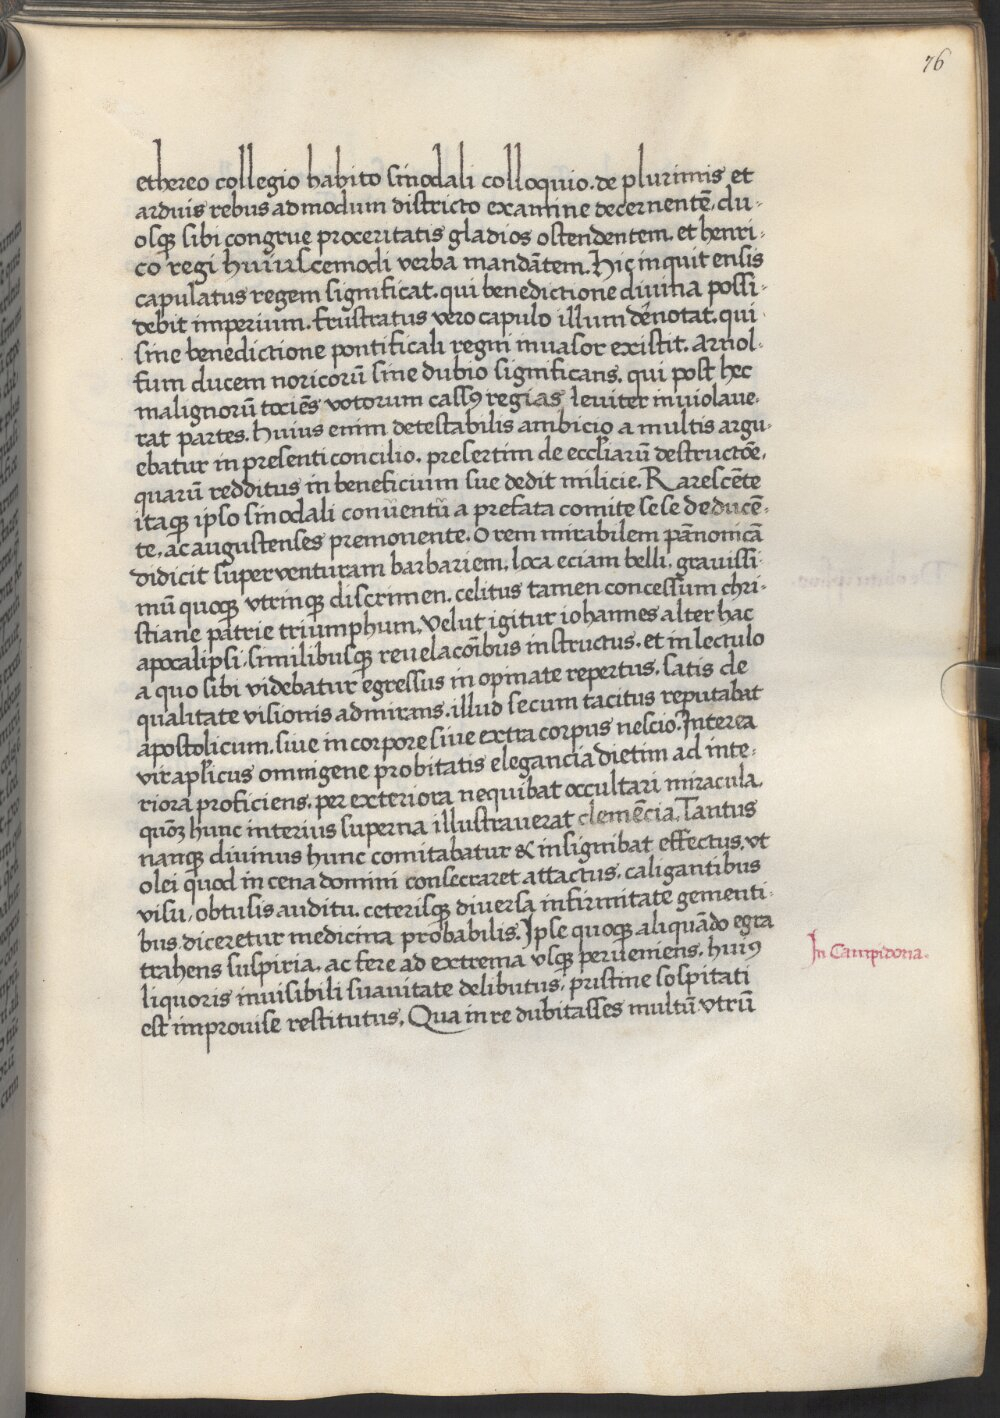 76
ethereo collegio habito sinodali colloquio. de plurimis et
arduis rebus admodum districto examine decernentē, du-
osq; sibi congrue proceritatis gladios ostendentem. et henri-
co regi huiuscemodi verba mandātem. Hic inquit ensis
capulatus regem significat. qui benedictione diuina possi-
debit imperium. frustratus vero capulo illum denotat. qui
sine benedictione pontificali regni inuasor existit. Arnol-
fum ducem noricorū sine dubio significans. qui post hec
malignorū tociēs votorum cassꝰ regias leuiter inuiolaue-
rat partes. Huius enim detestabilis ambicio a multis argu-
ebatur in presenti concilio. presertim de eccliarū destructōe,
quarū redditus in beneficium sue dedit milicie. Rarescēte
itaq; ipso sinodali conuentu a prefata comite sese deducē-
te, ac augustenses premonente. O rem mirabilem pānonicā
didicit superventuram barbariem, loca eciam belli, grauissi-
mū quoq; vtrinq; discrimen. celitus tamen concessum chri-
stiane patrie triumphum. Velut igitur iohannes alter hac
apocalipsi, similibusq; reuelacōibus instructus. et in lectulo
a quo sibi videbatur egressus in opinate repertus. satis de
qualitate visionis admirans. illud secum tacitus reputabat
apostolicum. siue in corpore siue extra corpus nescio. Interea
vir aplicus omnigene probitatis elegancia dietim ad inte-
riora proficiens, per exteriora nequibat occultari miracula,
quoꝝ hunc interius superna illustrauerat clemēcia. Tantus
nanq; diuinus hunc comitabatur & insignibat effectus, vt
olei quod in cena domini consecraret attactus, caligantibus
visu, obtusis auditu. ceterisq; diuersa infirmitate gementi-
bus, diceretur medicina probabilis. Ipse quoq; aliquādo egra
trahens suspiria, ac fere ad extrema vsq; perueniens, huiꝰ
liquoris inuisibili suauitate delibutus, pristine sospitati
est improuise restitutus. Qua in re dubitasses multū vtrū
In Campidona.